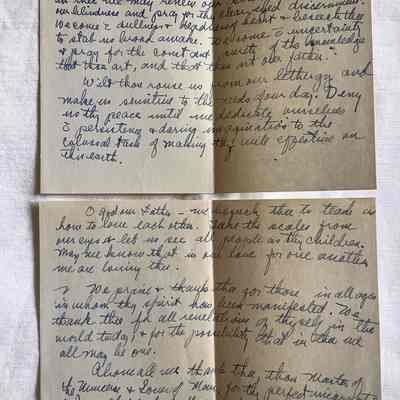 in thee we may renew our discernment.
our blindness and pray for the
We come dullness & heart & beseech thee
to stab us broad awake. We come uncertainty
& pray for the knowledge
that thou art, and that thou art our father.
Wilt thou rouse us from our lethargy and
make us sensitive to the needs of our day. Deny
us thy peace until we dedicate ourselves
persistency & daring imagination to the
colossal task of making thy will effective on
this earth.
O God our Father - we beseech thee to teach us
how to love each other. Take the scales from
our eyes & let us see all people as thy children.
May we know that in our love for one another
we are loving thee.
We praise & thank thee for those in all ages
in whom thy spirit has been manifested. We
thank thee for all revelations of thyself in the
world today & for the possibility that in thee we
all may be one.
Above all we thank thee, thou Master of
the Universe & Lover of Man, for the perfect